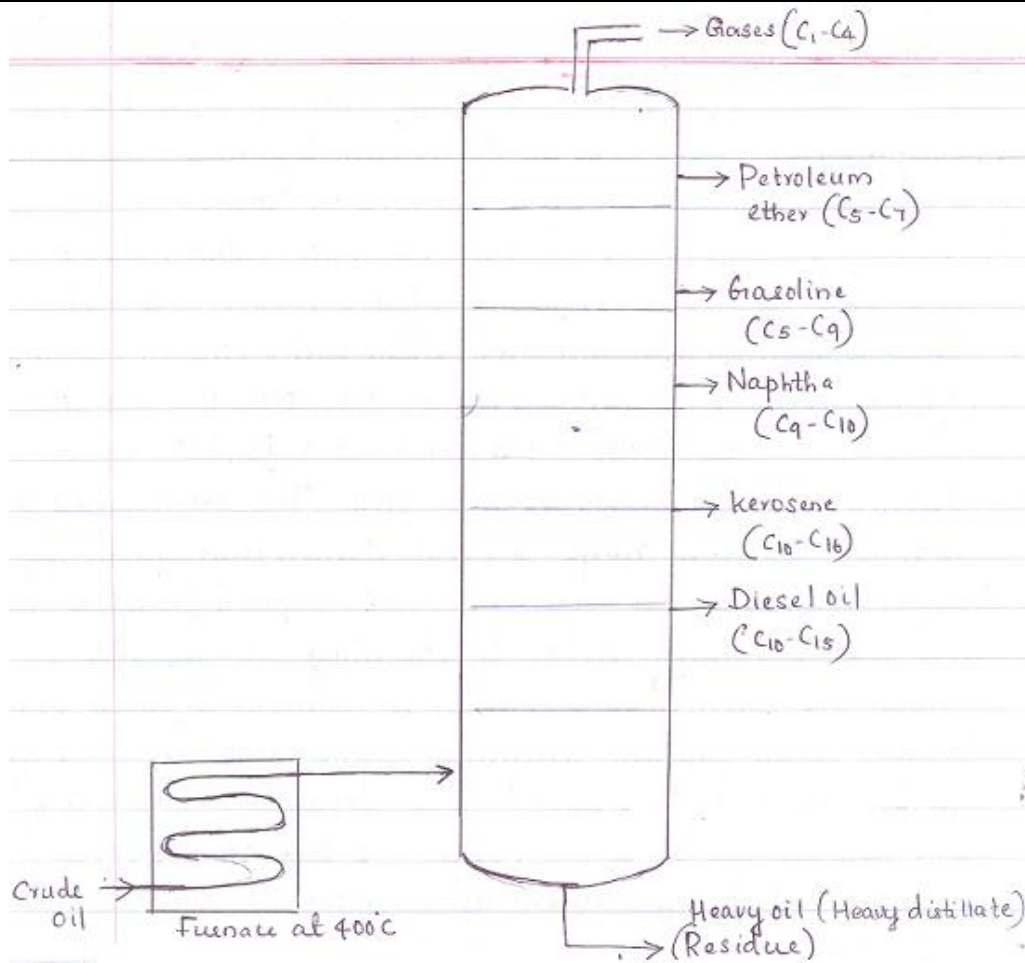 Gases (C₁-C₄)
Petroleum
ether (C₅-C₇)
Gasoline
(C₅-C₉)
Naphtha
(C₉-C₁₀)
Kerosene
(C₁₀-C₁₆)
Diesel oil
(C₁₀-C₁₅)
Crude
oil
Furnace at 400°C
Heavy oil (Heavy distillate)
(Residue)